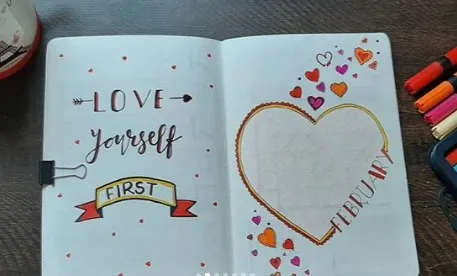 LOVE
Yourself
FIRST
FEBRUARY